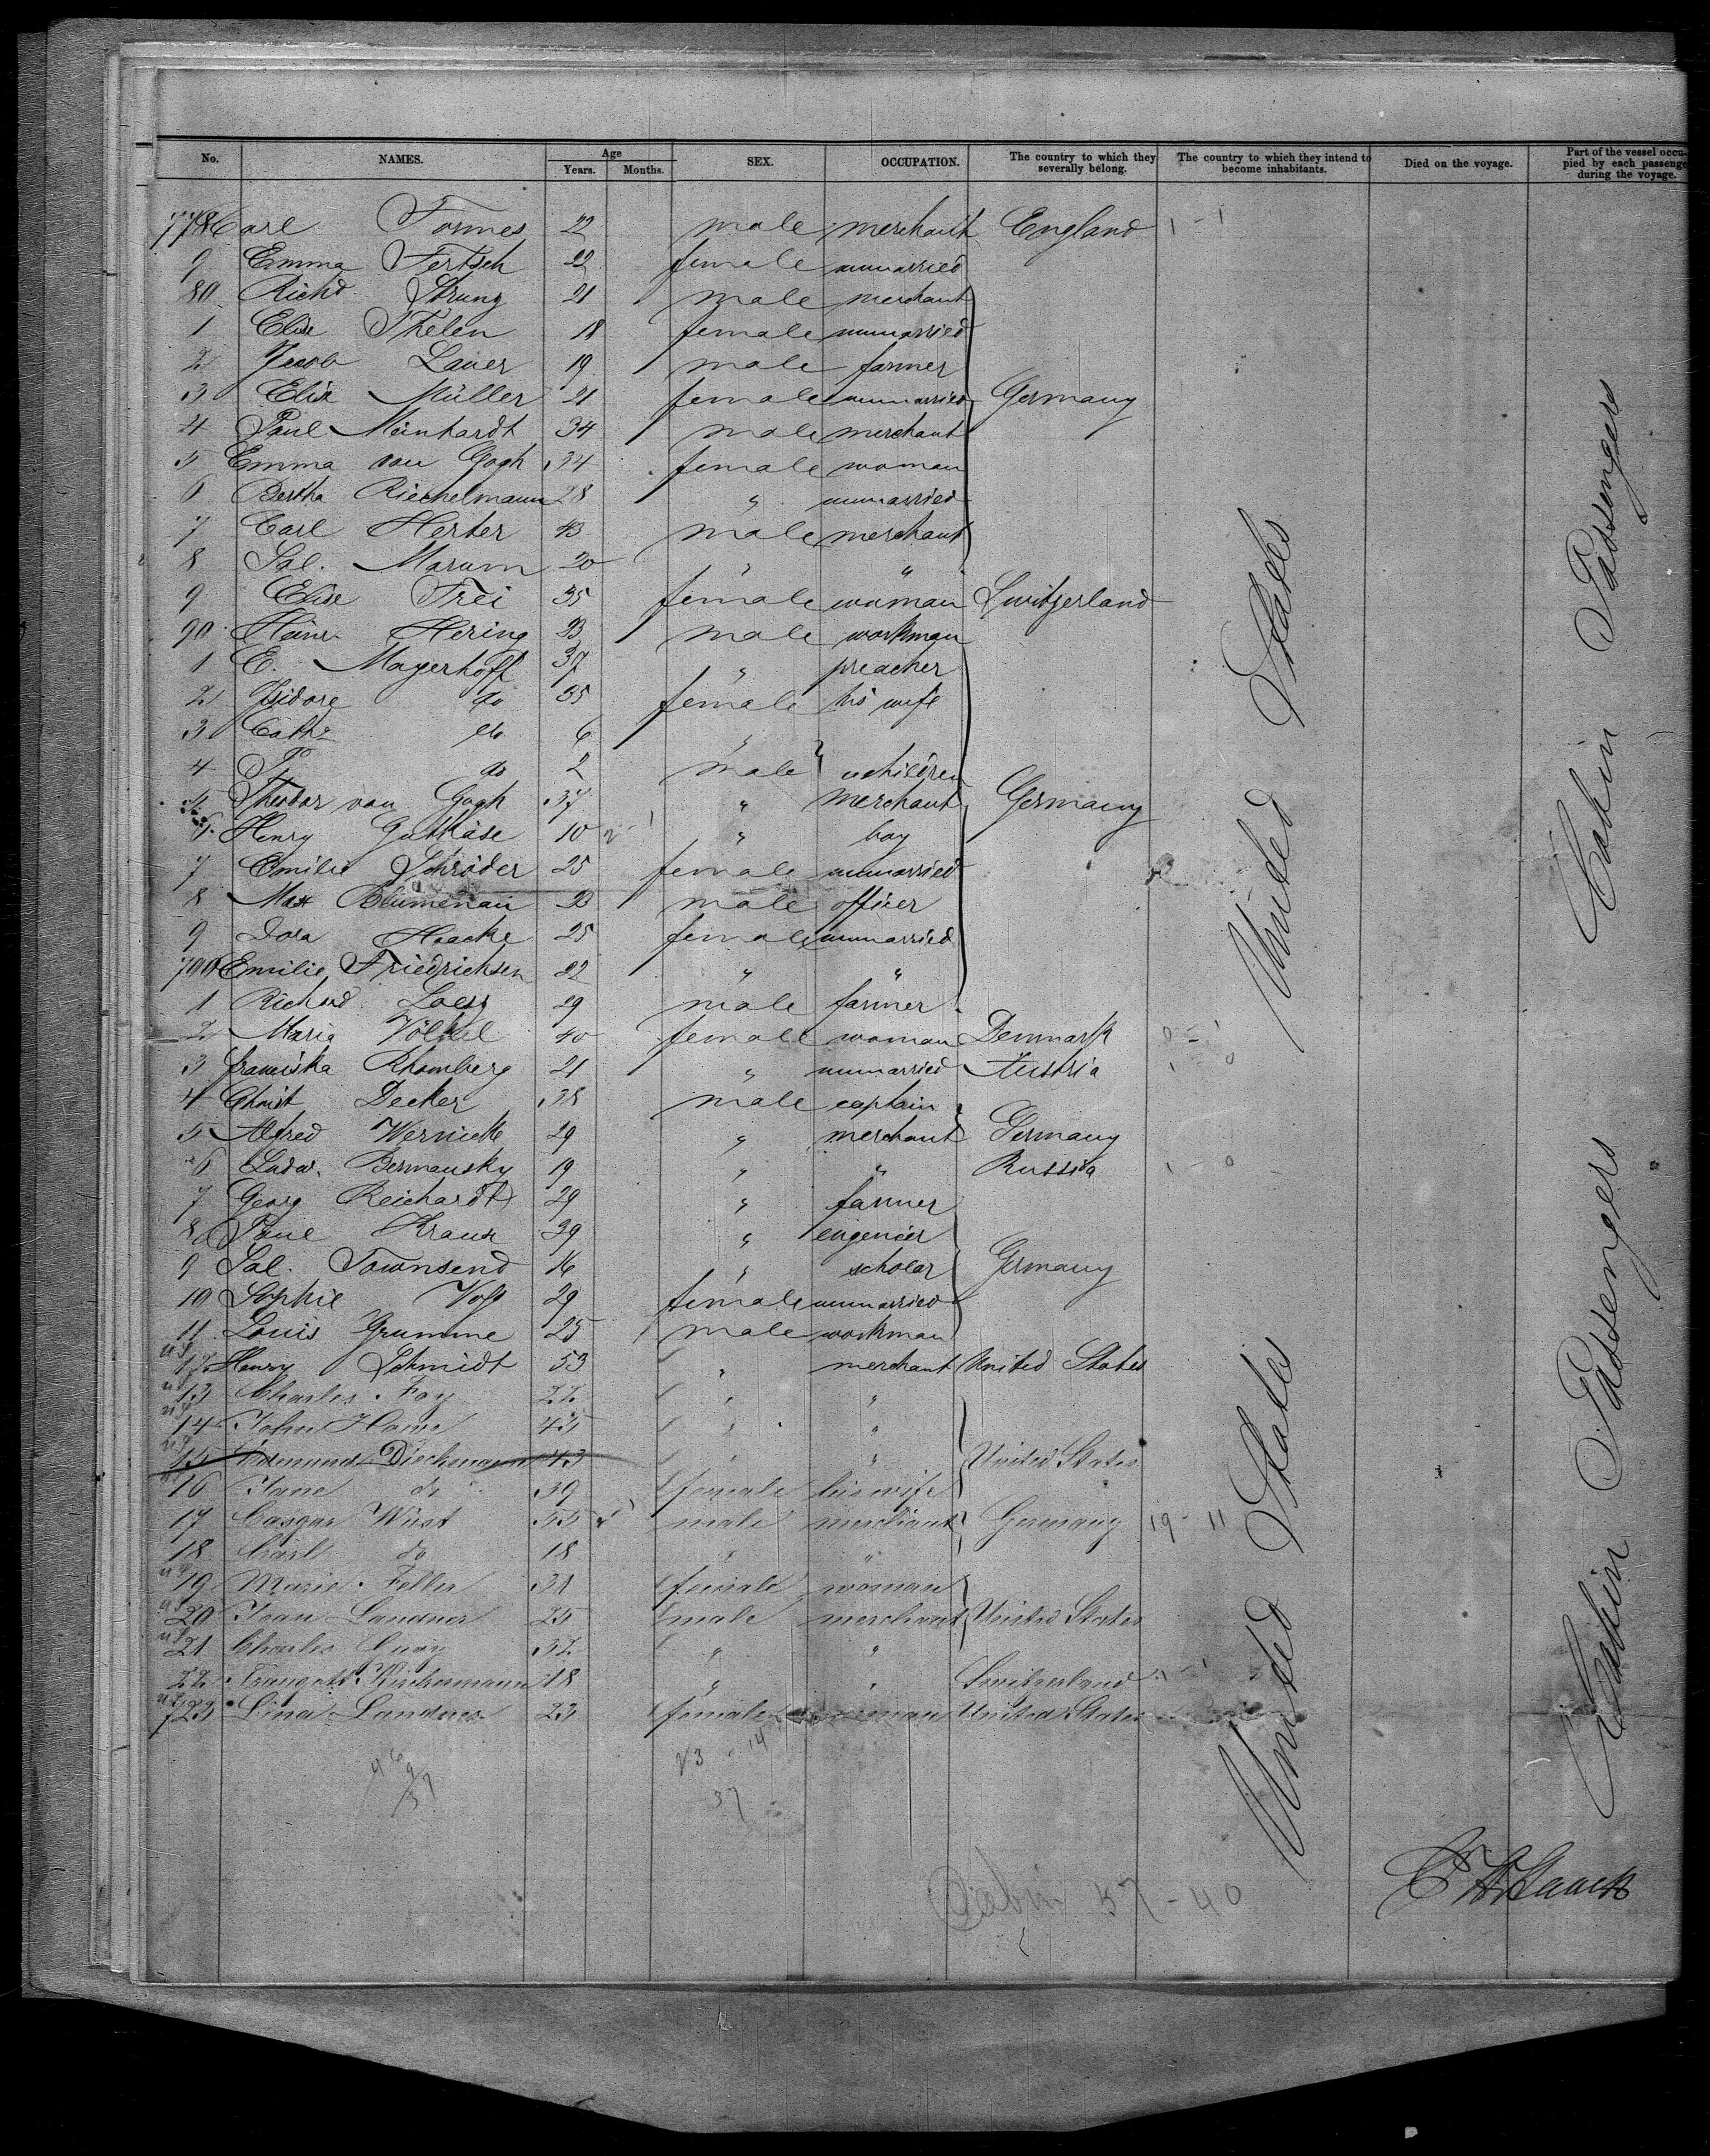 No. NAMES. Age Years. Months. SEX. OCCUPATION. The country to which they severally belong. The country to which they intend to become inhabitants. Died on the voyage. Part of the vessel occupied by each passenger during the voyage.
778 Carl Formes 22 male merchant England 1 - 1
9 Emma Fertsch 22 female unmarried
80 Richd Strung 21 male merchant
1 Elise Thelen 18 female unmarried
2 Jacob Lauer 19 male farmer
3 Elise Müller 21 female unmarried Germany
4 Paul Meinhardt 34 male merchant
5 Emma van Gogh 34 female woman
6 Bertha Riechelmann 28 " unmarried
7 Carl Herter 43 male merchant
8 Sal. Marum 20 " "
9 Elise Frei 35 female woman Switzerland
90 Heinr. Hering 23 male workman
1 E. Mayerhoff 37 " preacher
2 Isidore do 35 female his wife
3 Cathr do 6 "
4 do 2 male children
5 Theodor van Gogh 37 " merchant Germany
6 Henry Gutkäse 10 " boy
7 Emilie Schröder 25 female unmarried
8 Max Blumenau 23 male officer
9 Dora Haacke 25 female unmarried
700 Emilie Friedrichsen 22 " "
1 Richard Loess 29 male farmer
2 Maria Völkel 40 female woman Denmark 0 - 1
3 Franciska Rhomberg 21 " unmarried Austria 1 - 0
4 Christ Decker 38 male captain
5 Alfred Wernicke 29 " merchant Germany
6 Ludw. Bermansky 19 " " Russia 1 - 0
7 Georg Reichardt 29 " farmer
8 Paul Kraus 39 " engenier
9 Sal. Townsend 16 " scholar Germany
10 Sophie Voss 29 female unmarried
11 Louis Grumme 25 male workman
US 12 Henry Schmidt 53 " merchant United States
US 13 Charles Foy 22 " "
US 14 John Howe 45 " "
US 15 Edmund Dieckmann 43 " " United States
US 16 Jane do 39 female his wife
17 Caspar Wüst 55 male merchant Germany 19 - 11
18 Carl do 18 " "
US 19 Marie Feller 31 female woman
US 20 Ivan Landner 25 male merchant United States
US 21 Charles 32 " "
22 Traugott Kirchermann 18 " " Switzerland 1 - 1
US 723 Lina Landner 23 female woman United States
23 14
37
Cabin 57 - 40
United States
United States
Cabin Passengers
Cabin Passengers